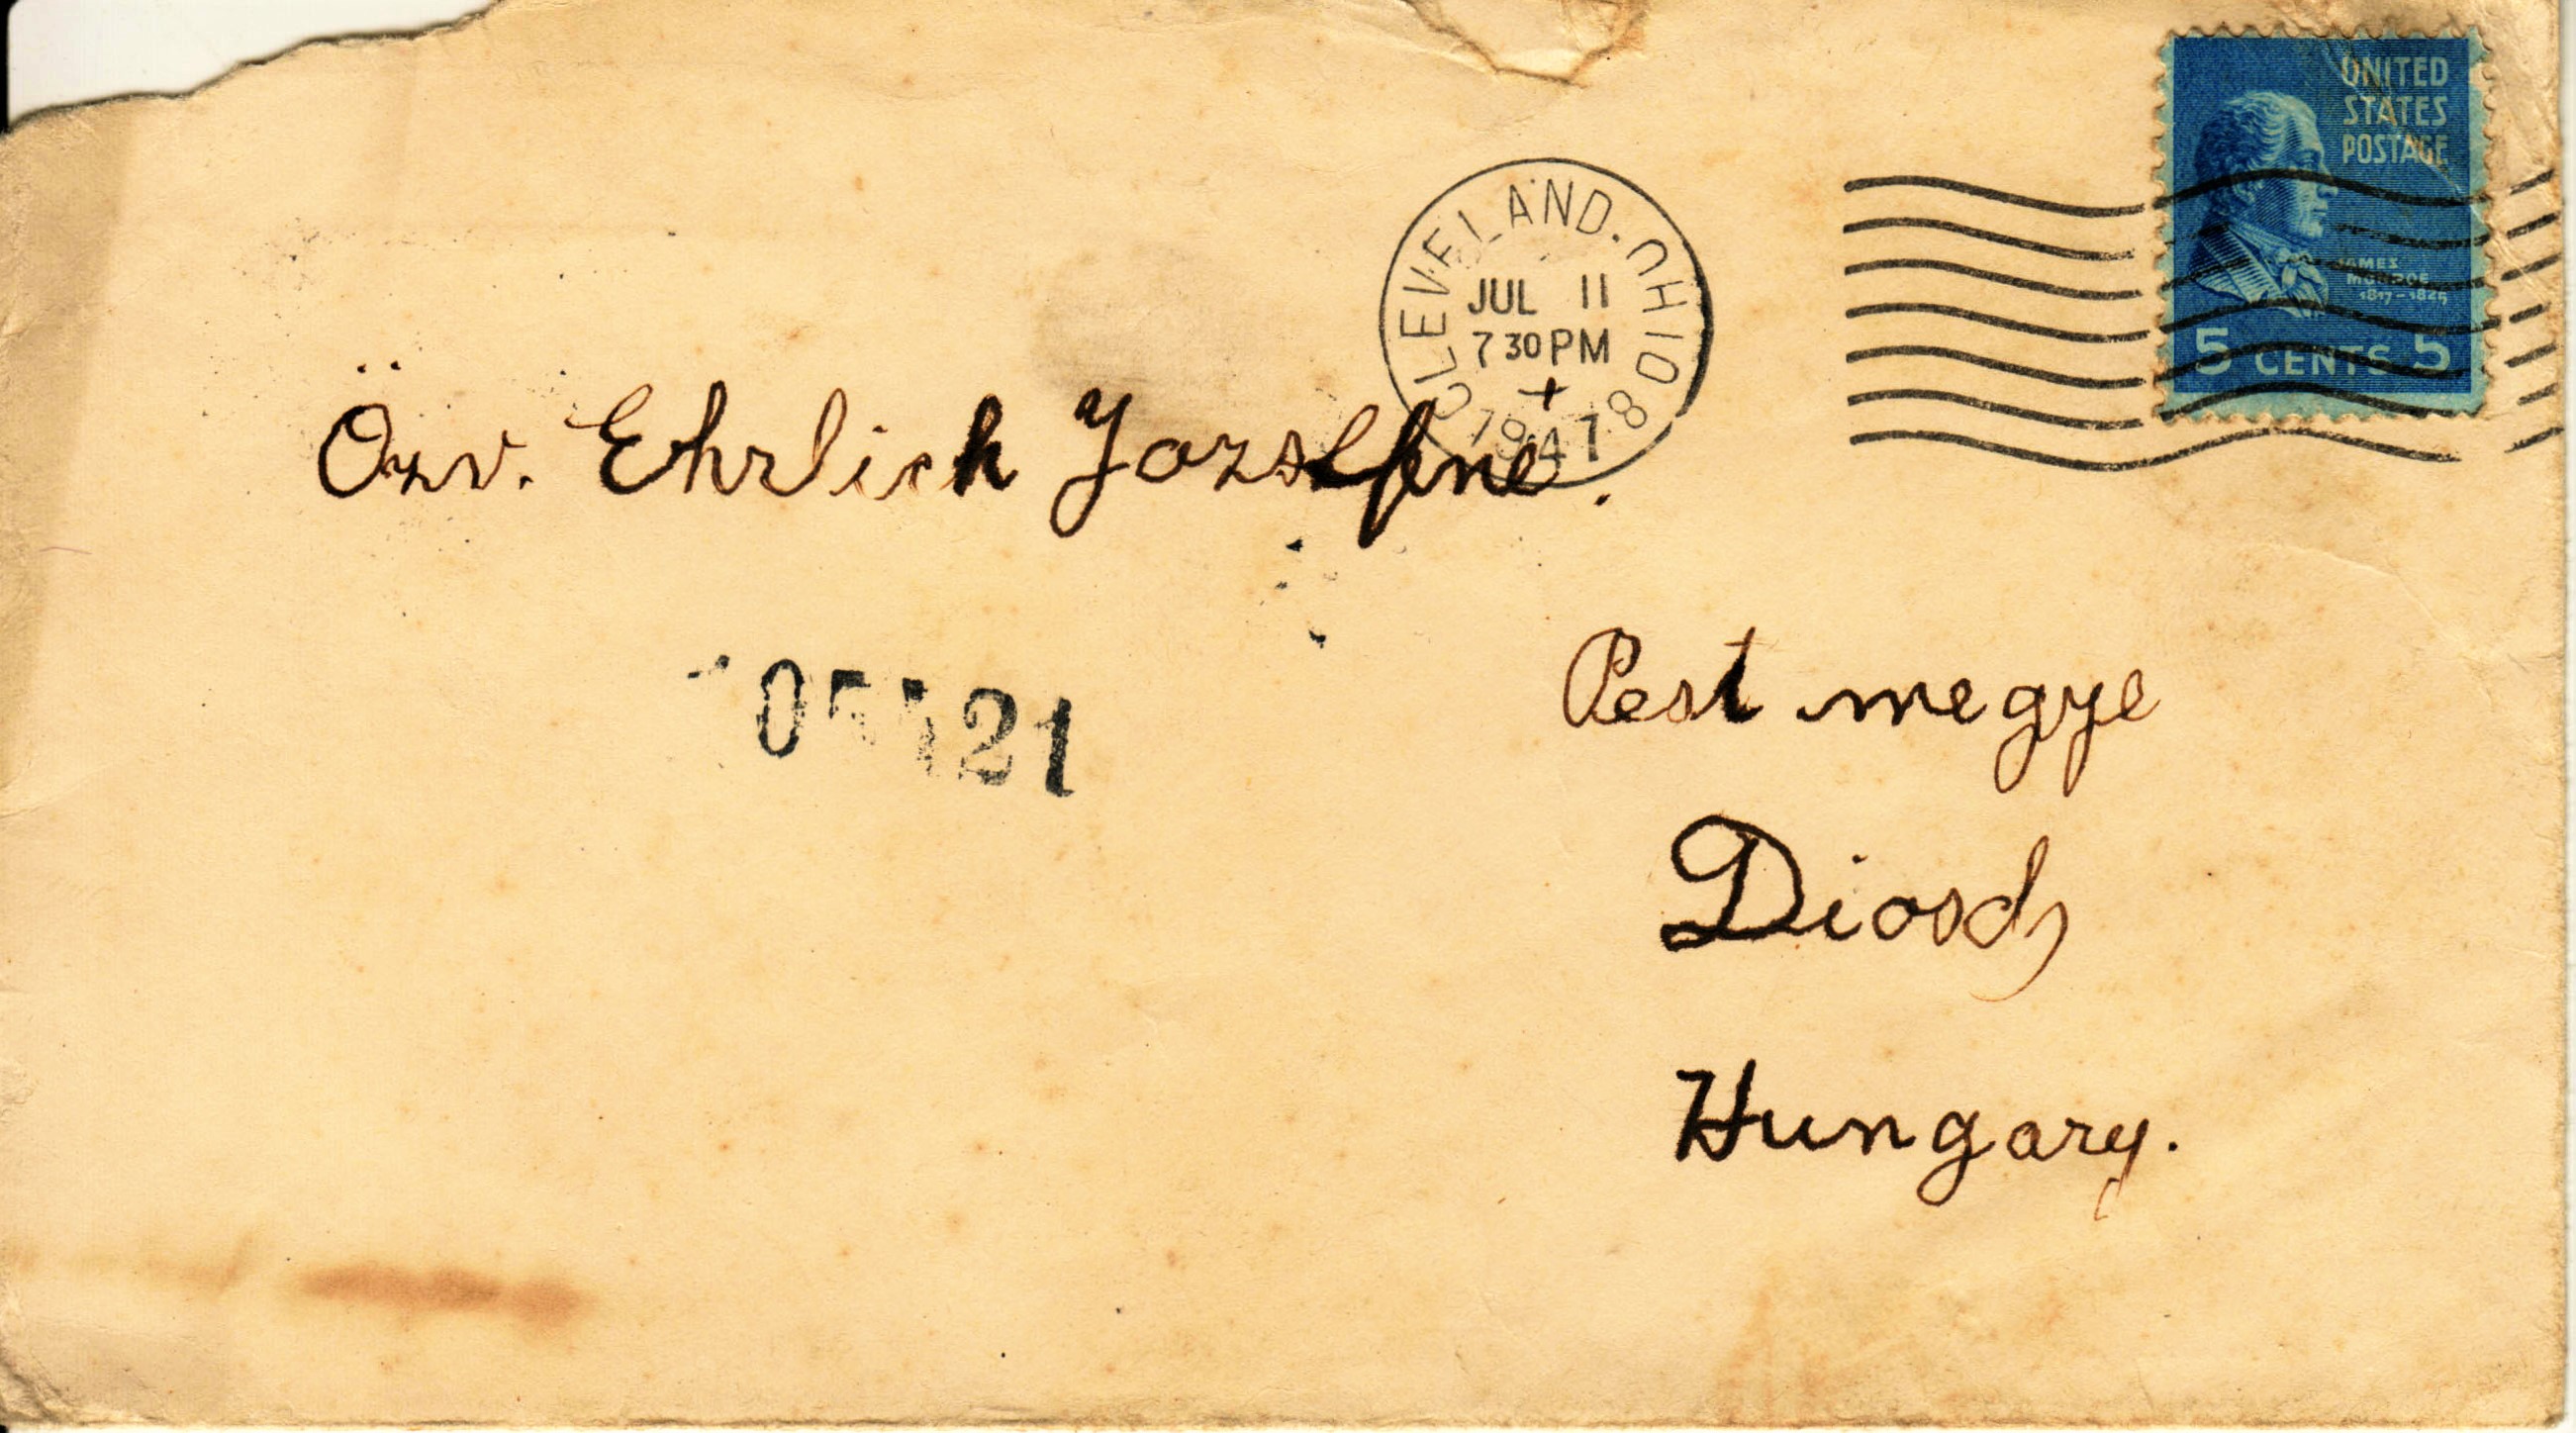 UNITED
STATES
POSTAGE
JAMES
MONROE
1817-1825
5 CENTS 5
CLEVELAND. OHIO 8
JUL 11
7 30 PM
1947
Özv. Ehrlich Jozsefné.
Pest megye
Diosd,
Hungary.